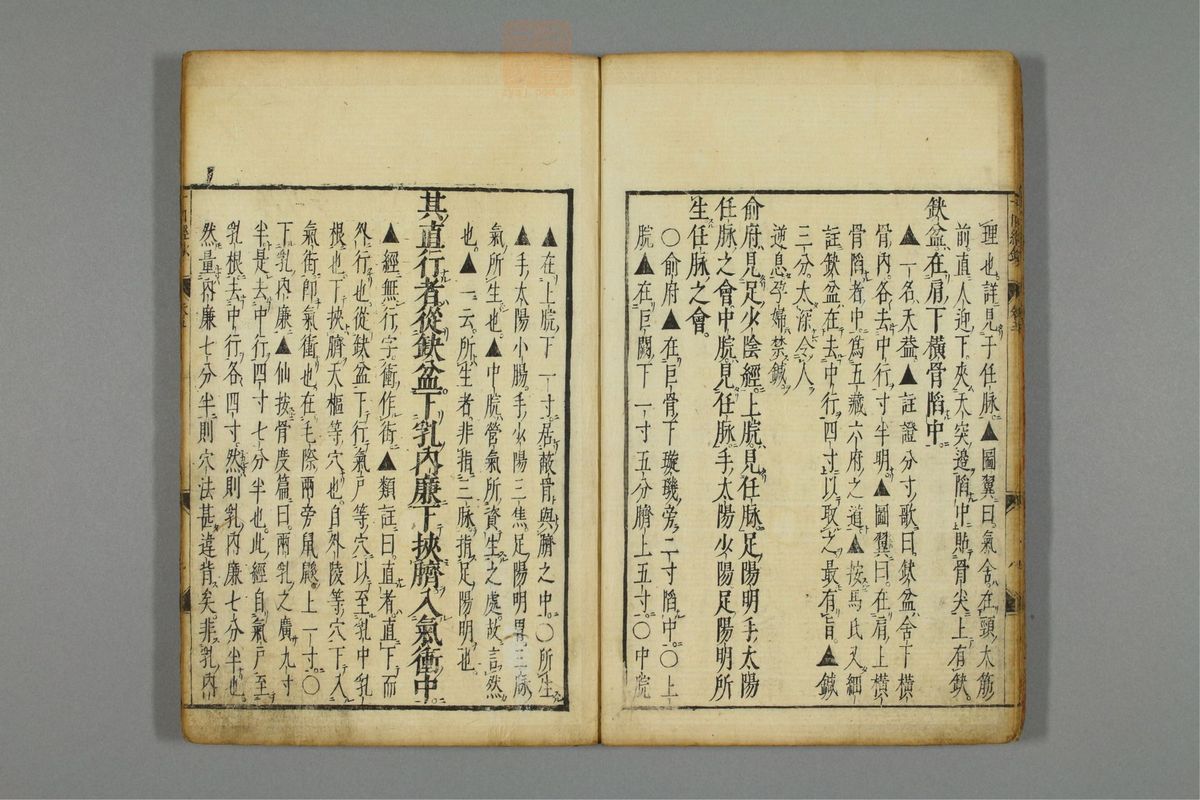 理也詳見于任脉▲圖翼曰氣舍在頸太筋
前直人迎下夾天突邉陷中貼骨尖上有缺
缺盆在肩下橫骨陷中
▲一名天葢▲註證分寸歌曰缺盆舍下橫
骨内各去中行寸半明▲圖翼曰在肩上橫
骨陷者中爲五藏六府之道▲按馬氏又細
註缺盆在去中行四寸以取之最有旨▲鍼
三分太深令人
逆息孕婦禁鍼
俞府見足少陰經上脘見任脉足陽明手太陽
任脉之會中脘見任脉手太陽少陽足陽明所
生任脉之會
○俞府▲在巨骨下璇璣旁二寸陷中○上
脘▲在巨闕下一寸五分臍上五寸○中脘
▲在上脘下一寸居蔽骨與臍之中○所生
▲手太陽小腸手少陽三焦足陽明胃三脉
氣所生也▲中脘管氣所資生之處故言然
也▲一云所生者非指三脉指足陽明也
其直行者從缺盆下乳内廉下挾臍入氣衝中
▲經無行字衝作街▲類註曰直者直下而
外行也從缺盆下行氣戸等穴以至乳中乳
根也下挾臍天樞等穴也自外陵等穴下入
氣街即氣衝也在毛際兩旁鼠鼷上一寸○
下乳内廉▲仙按骨度篇曰兩乳之廣九寸
半是去中行四寸七分半也此經自氣戸至
乳根去中行各四寸然則乳内廉七分半也
然量内廉七分半則穴法甚違背矣非乳内